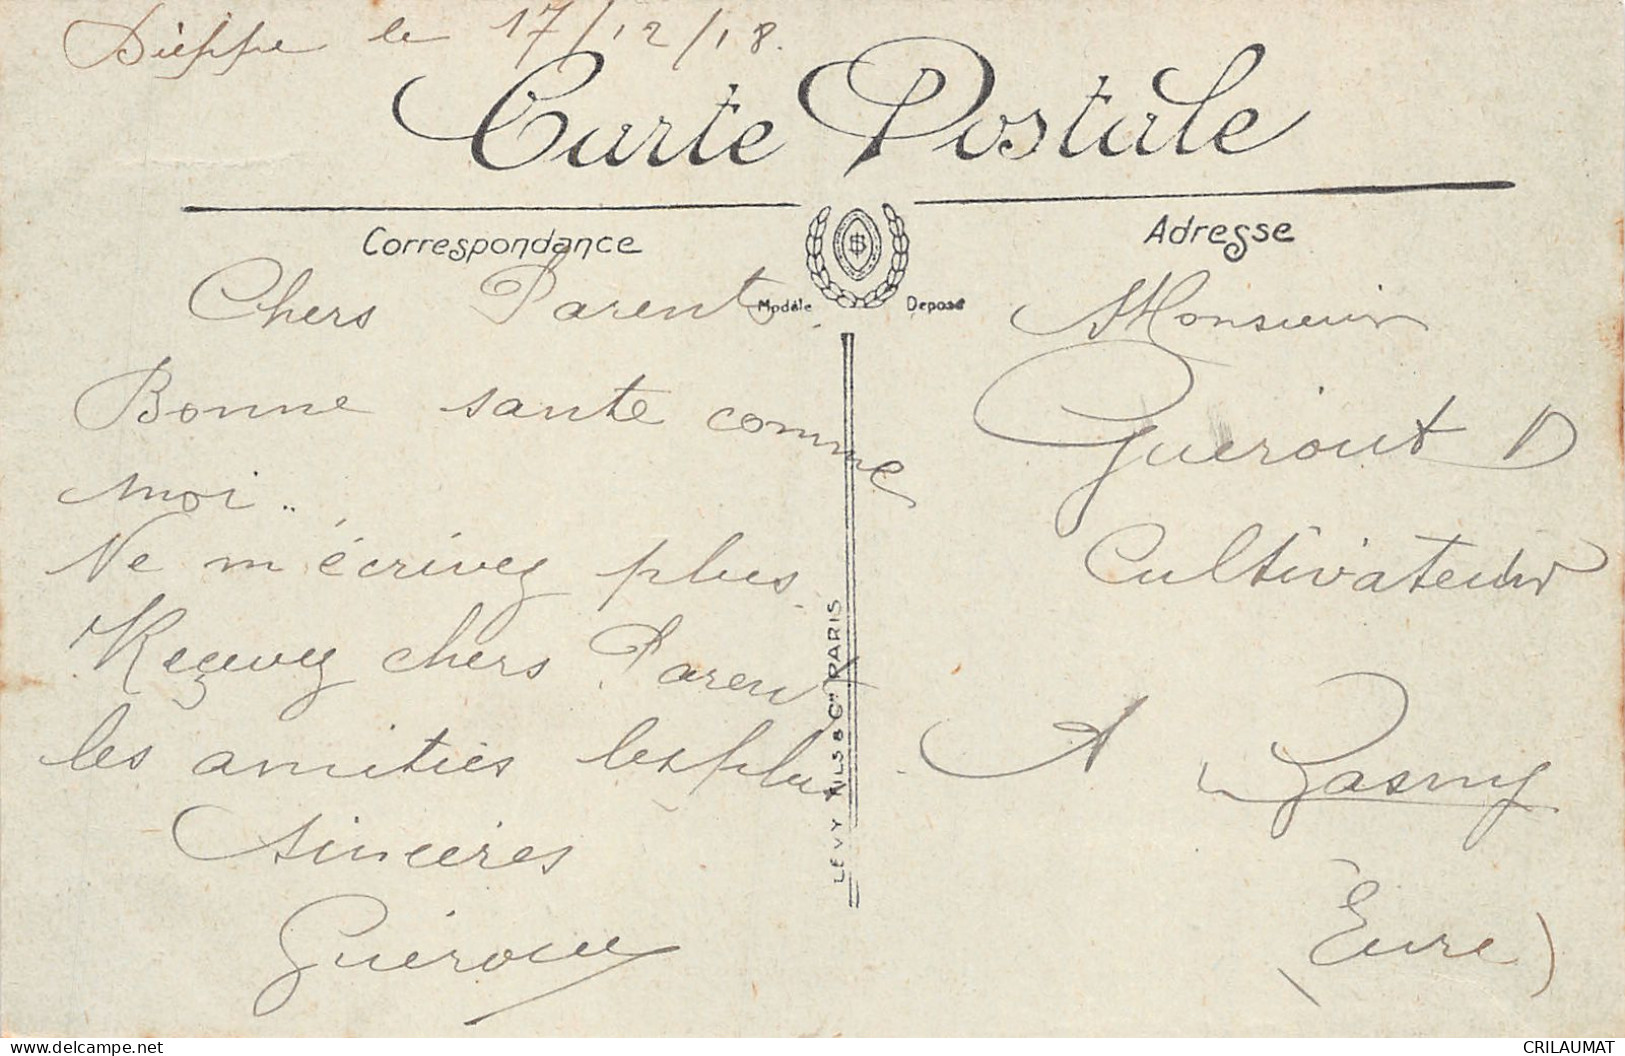 Dieppe le 17/12/18.
Carte Postale
Correspondance
Adresse
Modèle Déposé
Chers Parents
Bonne santé comme
moi..
Ne m'écrivez plus.
Reçevez chers Parent
les amitiés les plus
sincères
Guérout
LÉVY FILS & Cie PARIS
Monsieur
Guerout D
Cultivateur
A Gasny
(Eure)
www.delcampe.net
CRILAUMAT